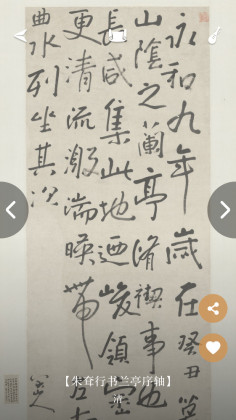 永和九年歲在癸丑
山陰之蘭亭脩禊事也
長咸集此地迺峻領
更清流激湍暎帶左
曲水列坐其次
八大山人
【朱耷行书兰亭序轴】
清